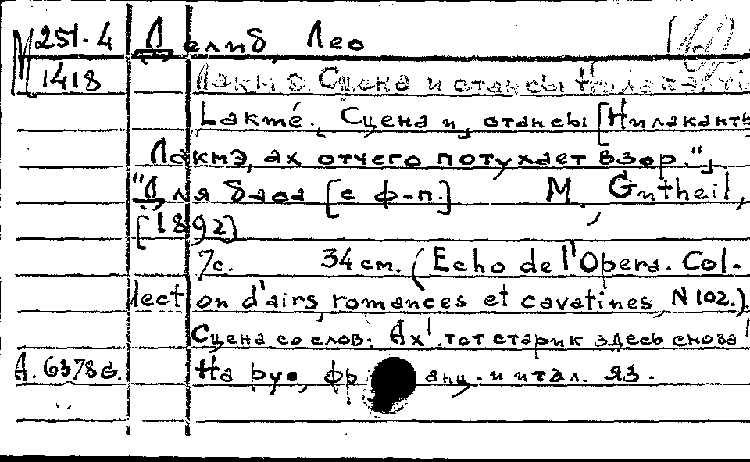 М 251-4 Делиб, Лео
1418 Лакмэ. Сцена и стансы
Lakmé. Сцена и стансы [Нилаканты
"Лакмэ, ах отчего потухает взор."]
Для баса [с ф-п.] М., Gutheil,
[1892]
7с. 34 см. (Echo de l'Opera. Col-
lection d'airs, romances et cavatines, N 102.)
Сцена со слов: Ах! тот старик здесь снова!
А. 6378 б. На рус., франц. и итал. яз.